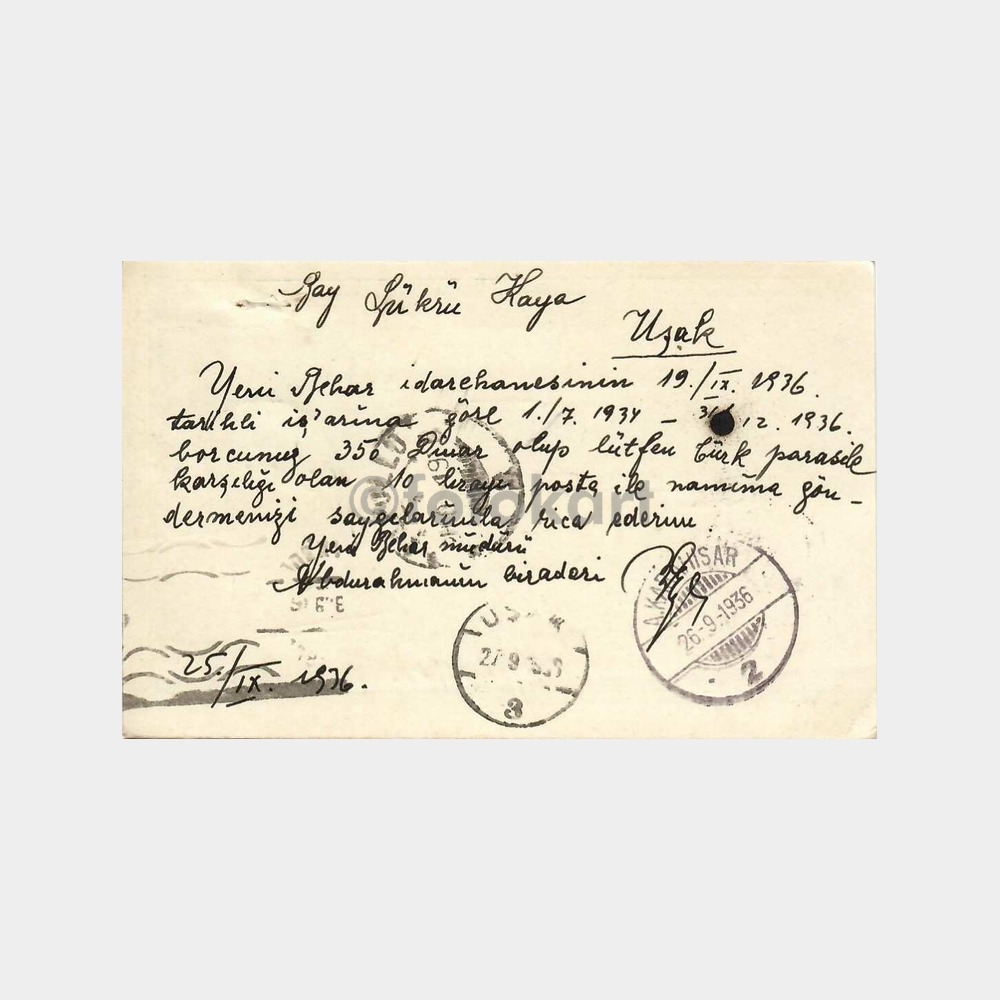 Bay Şükrü Kaya
Uşak
Yeni Behar idarehanesinin 19./IX. 1936.
tarihli iş'arına göre 1./7. 1934 – 31/ 12. 1936.
borcunuz 350 Dinar olup lütfen türk parasile
karşılığı olan 10 lirayi posta ile namıma gön-
dermenizi saygılarımla rica ederim
Yeni Behar müdürü
Abdurahmanın biraderi
25./IX. 1936.
UŞAK
27 9
3
A.KARAHİSAR
26-9-1936
2
©fotokart